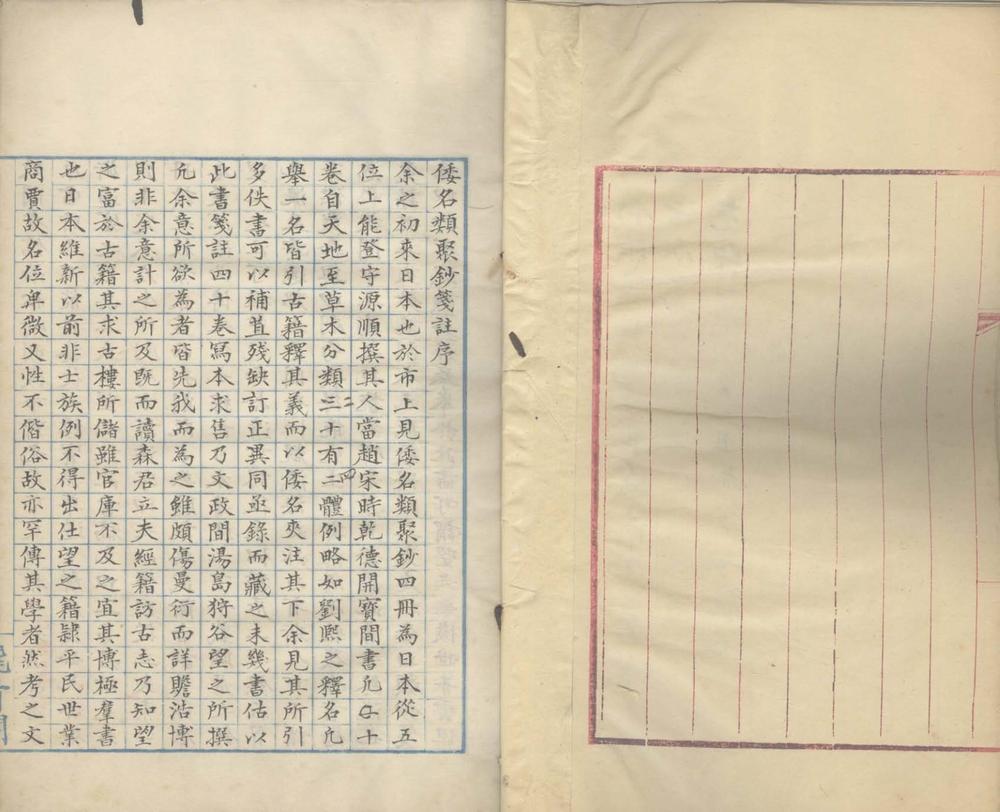 倭名類聚鈔箋註序
余之初來日本也於市上見倭名類聚鈔四冊為日本從五
位上能登守源順撰其人當趙宋時乾德開寶間書凡二十
卷自天地至草木分類三十有二體例略如劉熙之釋名凡
舉一名皆引古籍釋其義而以倭名夾注其下余見其所引
多佚書可以補苴殘缺訂正異同亟錄而藏之未幾書估以
此書箋註四十卷寫本求售乃文政間湯島狩谷望之所撰
凡余意所欲為者皆先我而為之雖頗傷曼衍而詳贍浩博
則非余意計之所及既而讀森君立夫經籍訪古志乃知望
之富於古籍其求古樓所儲雖官庫不及之宜其博極羣書
也日本維新以前非士族例不得出仕望之籍隸平民世業
商賈故名位卑微又性不偕俗故亦罕傳其學者然考之文